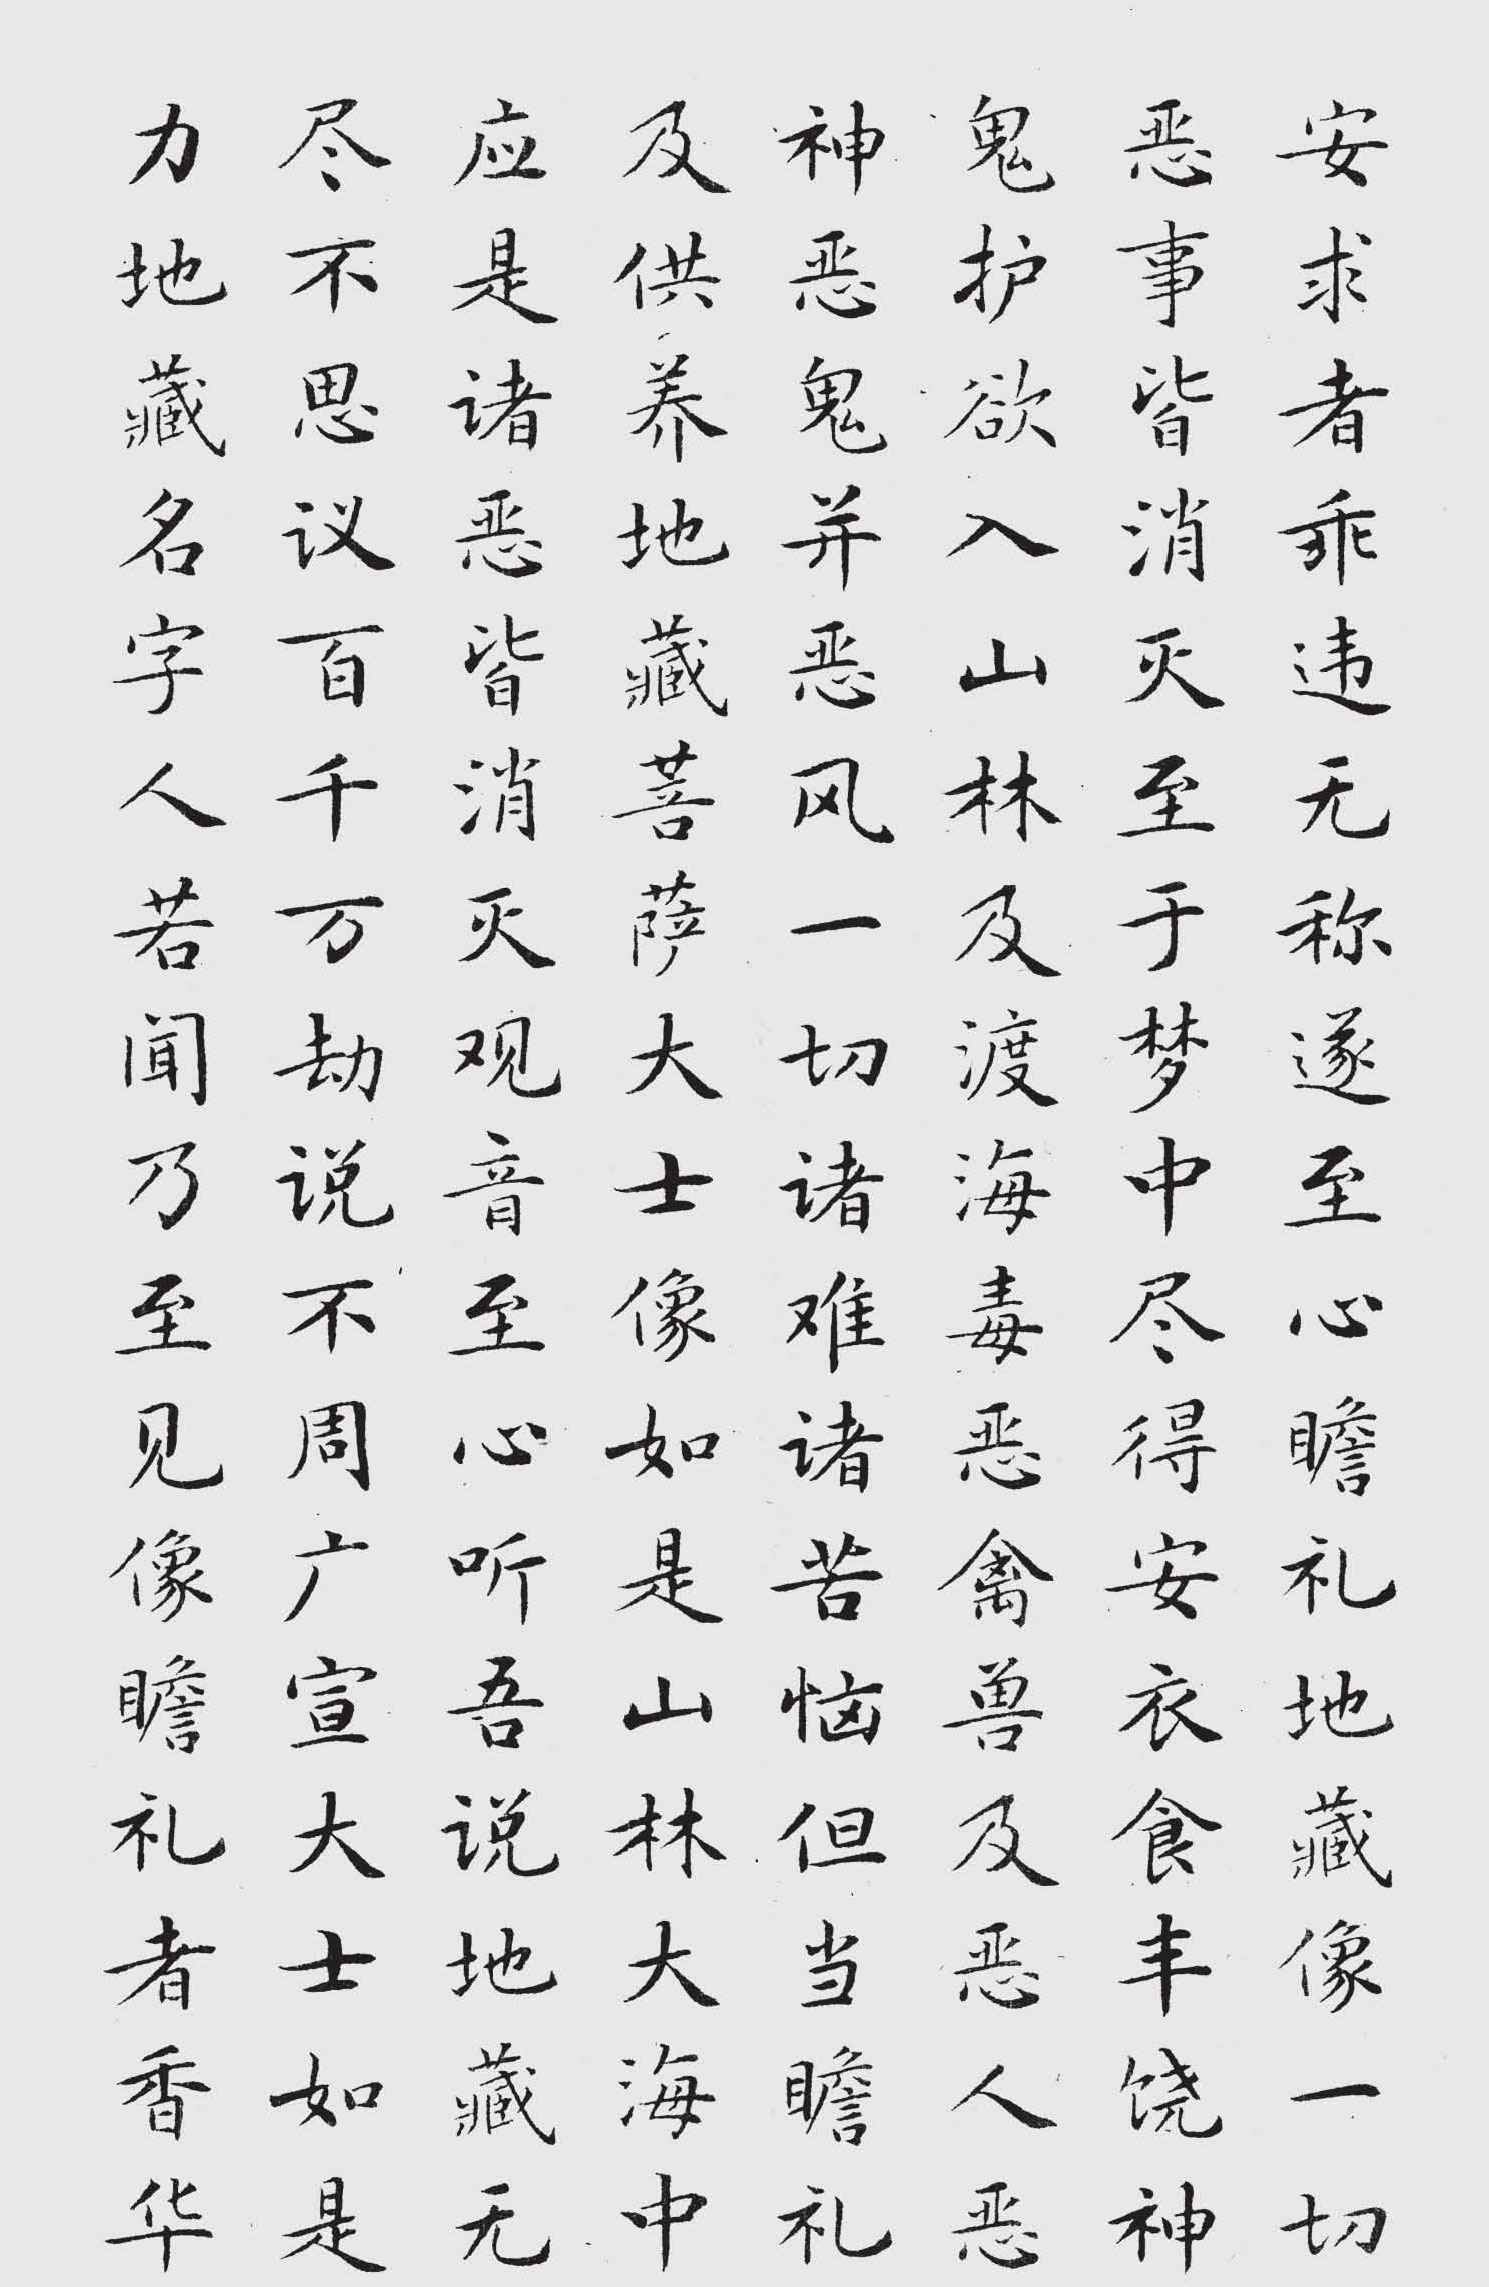 安求者乖违无称遂至心瞻礼地藏像一切
恶事皆消灭至于梦中尽得安衣食丰饶神
鬼护欲入山林及渡海毒恶禽兽及恶人恶
神恶鬼并恶风一切诸难诸苦恼但当瞻礼
及供养地藏菩萨大士像如是山林大海中
应是诸恶皆消灭观音至心听吾说地藏无
尽不思议百千万劫说不周广宣大士如是
力地藏名字人若闻乃至见像瞻礼者香华